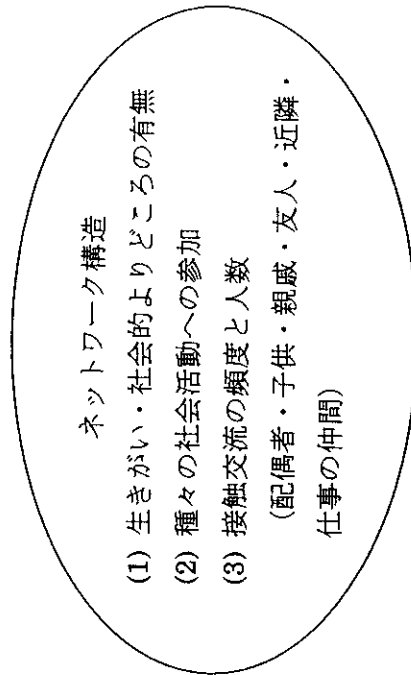 ネットワーク構造
(1) 生きがい・社会的よりどころの有無
(2) 種々の社会活動への参加
(3) 接触交流の頻度と人数
(配偶者・子供・親戚・友人・近隣・
仕事の仲間)